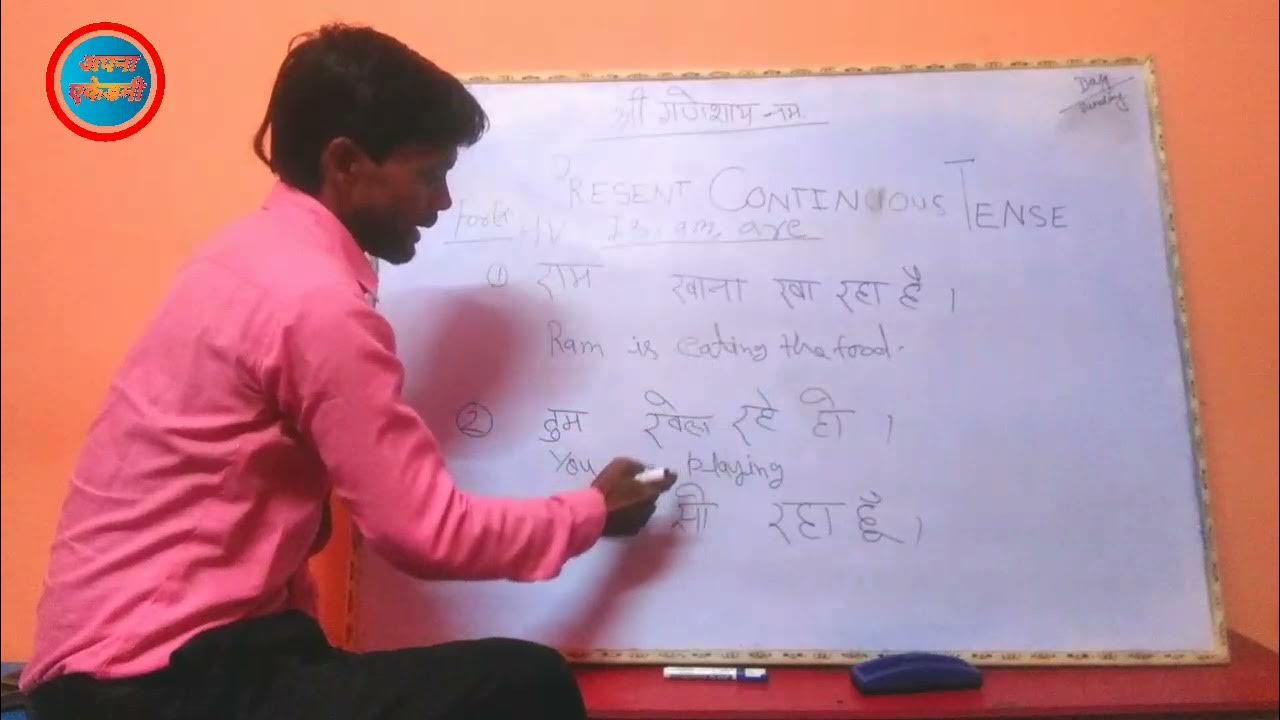 अपना
एकेडमी
Day
Sunday
श्री गणेशाय नम.
PRESENT CONTINUOUS TENSE
HV Is, am, are
① राम खाना खा रहा है ।
Ram is eating the food.
② तुम खेल रहे हो ।
You playing
सो रहा हूँ ।